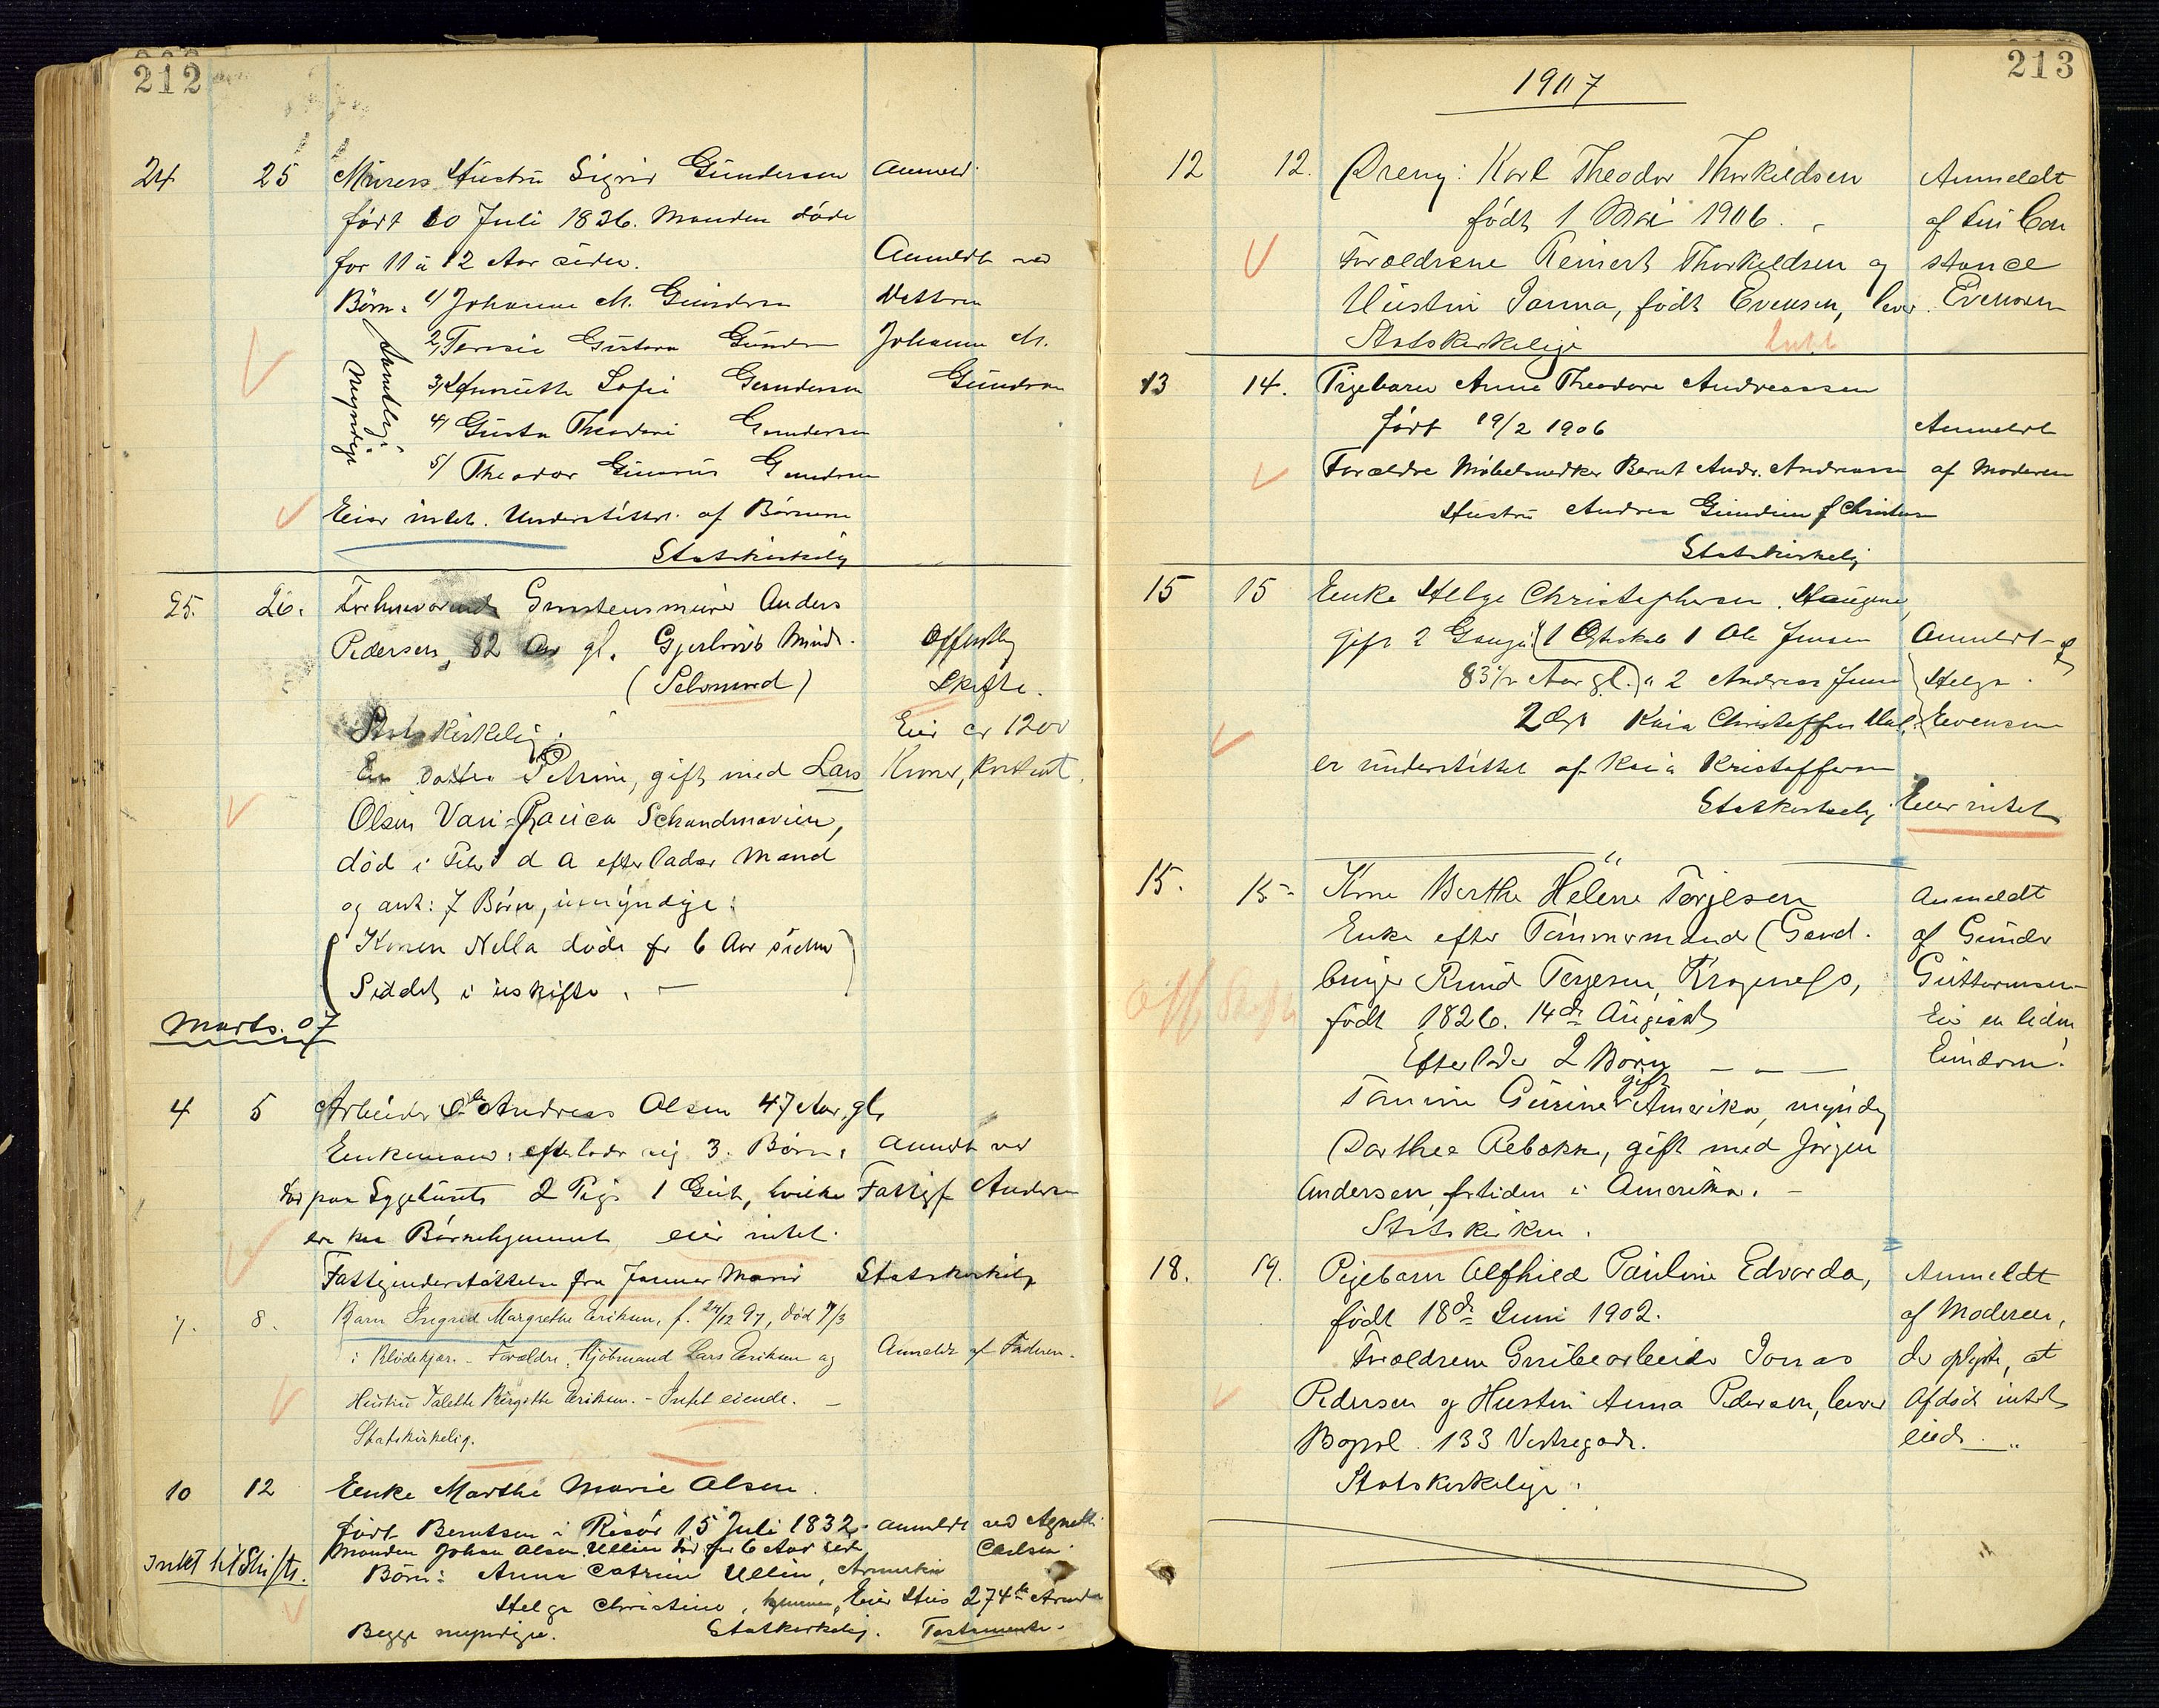 212
24 25 Murers Hustru Sigrid Gundersen Anmeld.
født 10 Juli 1836. Manden døde
for 11 à 12 Aar siden. Anmeldt ved
Børn: 1/ Johanne M. Gundersen Datteren
2/ Teresie Gustava Gunders Johanne M.
3/ Sofie Gundersen Gundersen
4/ Gusta Theodora Gundersen
5/ Theodor Gunerius Gundersen
Samtlige Myndige
Eier intet. Understøttet af Børnene
Statskirkelig
25. 26. Forhenværende Grundstensmurer Anders
Pedersen, 82 Aar gl. Gjerløvs Minde. Offentlig
(Selvmord) Skifte.
Statskirkelig. Eier cr 1200
En Datter Petrine, gift med Lars Kroner, kontant.
Olsen Skandinavien,
død i Febr d A efterlader Mand
og ant: 7 Børn, umyndige:
(Konen Nella døde for 6 Aar siden
Siddet i uskifte. —)
Marts. 07
4 5 Arbeider Ole Andreas Olsen 47 Aar gl.
Enkemand: efterlader sig 3. Børn: Anmeldt ved
død paa Sygehuset 2 Piger 1 Gut, hvilke Fattigf Andersen
ere paa Børnehjemmet, eier intet.
Fattigunderstøttelse fra Januar Maaned Statskirkelig
7. 8. Barn Ingrid Margrethe Eriksen, f. 24/12 97, død 7/3
i Blødekjær. - Forældre, Kjøbmand Lars Eriksen og Anmeldt af Faderen.
Hustru Talette Birgitte Eriksen. - Intet eiende. —
Statskirkelig.
10 12 Enke Marthe Marie Olsen.
født Berntsen i Risør 15 Juli 1832. Anmeldt ved Agnethe
Manden Johan Olsen Ullin død for 6 Aar siden Carlsen.
Intet til Skifte. Børn: Anna Catrine Ullin, Amerika
Helga Christine, hjemme, Eier Hus 274
Begge myndige. Statskirkelig. Testamente.
213
1907
12 12. Dreng: Karl Theodor Thorkildsen Anmeldt
født 1 Mai 1906. af Fru Con
Forældrene Reinert Thorkildsen og stance
Hustru Janna, født Evensen, lever. Evensen
Statskirkelige Intet
13 14. Pigebarn Anna Theodora Andreassen
født 19/2 1906 Anmeldt
Forældre Møbelsnedker Bernt Andr. Andreassen af Moderen
Hustru Andrea Gundine f Christensen
Statskirkelig
15 15 Enke Helge Christophersen. Haugene,
gift 2 Gange 1 Ægteskab 1 Ole Jensen Anmeldt af
83 1/2 Aar gl. " 2 Andreas Jensen Helga
2 Kaia Christoffersen Evensen
er understøttet af Kaia Kristoffersen
Statskirkelig. Eier intet
15. 15 Kone Berthe Helene Terjesen Anmeldt
Enke efter Tømmermand (Gaard. af Gunder
Off Skifte bruger Knud Terjesen, Kragenæs, Guttormsen
født 1826. 14de August Eier en liden
Efterlader 2 Børn — — — Eiendom.
Tomine Gurine gift Amerika, myndig
Dorthea Rebekka, gift med Jørgen
Andersen, fortiden i Amerika. —
Statskirken.
18. 19. Pigebarn Alfhild Pauline Edvarda, Anmeldt
født 18de Juni 1902. af Moderen,
Forældrene Grubearbeider Jonas der oplyste, at
Pedersen og Hustru Anna Pedersen, lever Afdøde intet
Bopæl. 133 Vestregade. eiede.
Statskirkelige.